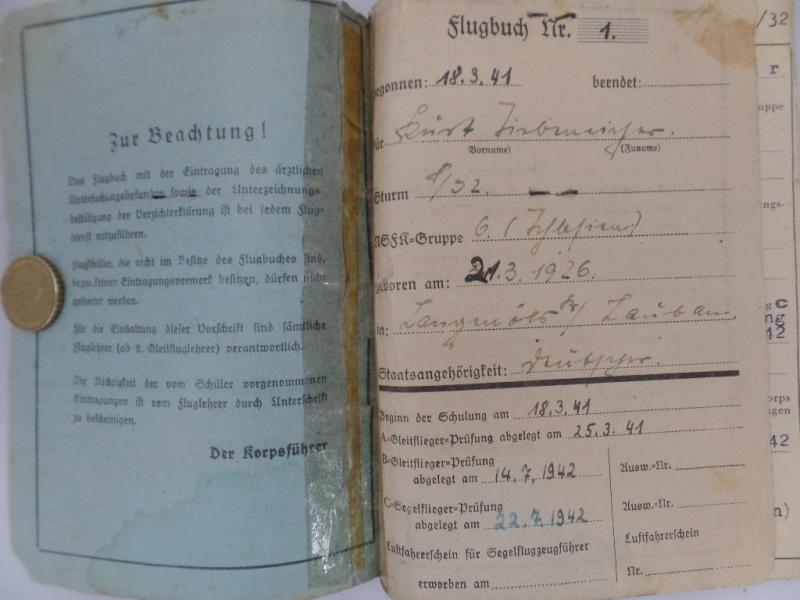 Zur Beachtung!
Das Flugbuch mit der Eintragung des ärztlichen
Untersuchungsbefundes sowie der Unterzeichnungs-
bestätigung der Verzichterklärung ist bei jedem Flug-
dienst mitzuführen.
Flugschüler, die nicht im Besitze des Flugbuches sind,
bezw. keinen Eintragungsvermerk besitzen, dürfen nicht
gestartet werden.
Für die Einhaltung dieser Vorschrift sind sämtliche
Fluglehrer (ab 2. Gleitfluglehrer) verantwortlich.
Die Richtigkeit der vom Schüler vorgenommenen
Eintragungen ist vom Fluglehrer durch Unterschrift
zu bescheinigen.
Der Korpsführer
Flugbuch Nr. 1.
Begonnen: 18.3.41 beendet:
für Kurt
(Vorname) (Zuname)
Sturm 8/32.
NSFK-Gruppe 6. (Schlesien)
geboren am: 21.3.1926.
in: Langenöls Lauban.
Staatsangehörigkeit: Deutscher.
Beginn der Schulung am 18.3.41
A-Gleitflieger-Prüfung abgelegt am 25.3.41
B-Gleitflieger-Prüfung
abgelegt am 14.7.1942
Ausw.-Nr.
C-Segelflieger-Prüfung
abgelegt am 22.7.1942
Ausw.-Nr.
Luftfahrerschein für Segelflugzeugführer
erworben am
Luftfahrerschein
Nr.
/32
r
uppe
ngs-
g C
ng
42
orps
ngen
42
n)